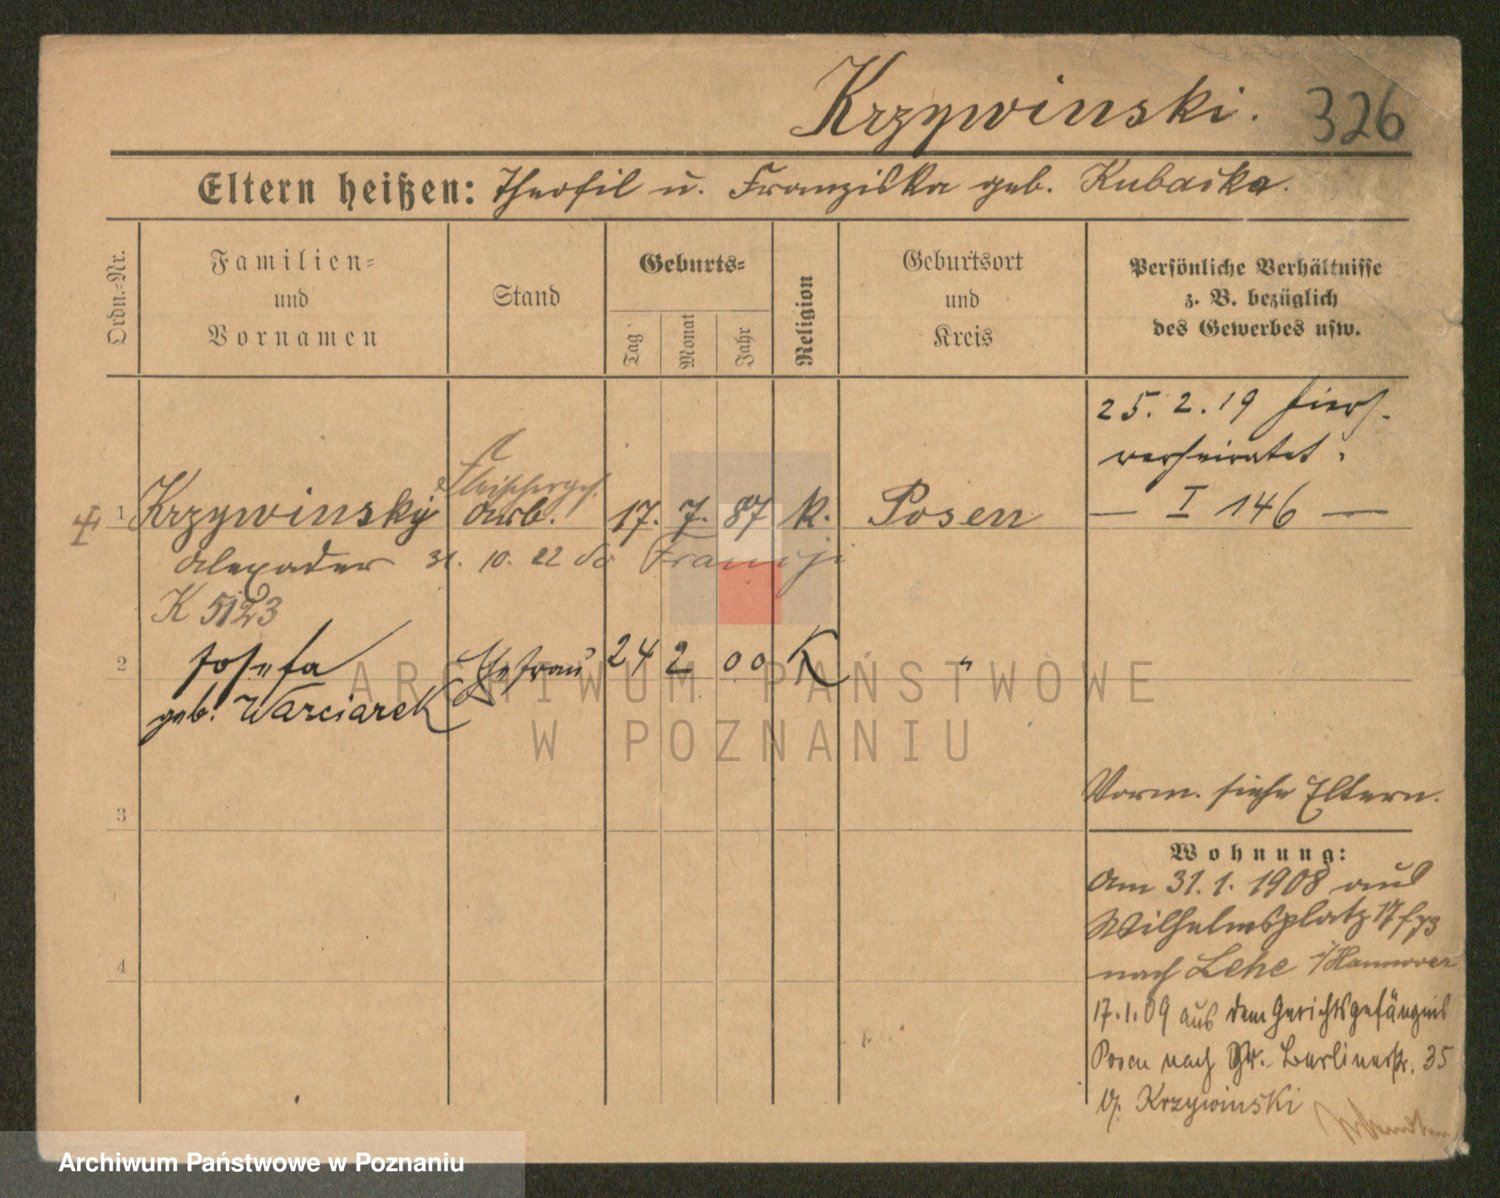 Krzywinski. 326
Eltern heißen: Theofil u. Franziska geb. Kubacka.
Ordn.-Nr.
Familien-
und
Vornamen
Stand
Geburts-
Tag
Monat
Jahr
Religion
Geburtsort
und
Kreis
Persönliche Verhältnisse
z. B. bezüglich
des Gewerbes usw.
25. 2. 19 hier
verheiratet.
— I 146 —
Fleischerges.
1 Krzywinsky Arb. 17. 7. 87 k. Posen
Alexander 31. 10. 22
K 5123
2 Josefa Ehefrau 24 2 00 K "
geb. Warciarek
3
Vorm. siehe Eltern.
Wohnung:
Am 31. 1. 1908 aus
Wilhelmsplatz 17
nach Lehe i/Hannover
4
17.1.09 aus dem Gerichtsgefängnis
Posen nach Gr. Berlinerstr. 35
b. Krzywinski
ARCHIWUM PAŃSTWOWE
W POZNANIU
Archiwum Państwowe w Poznaniu